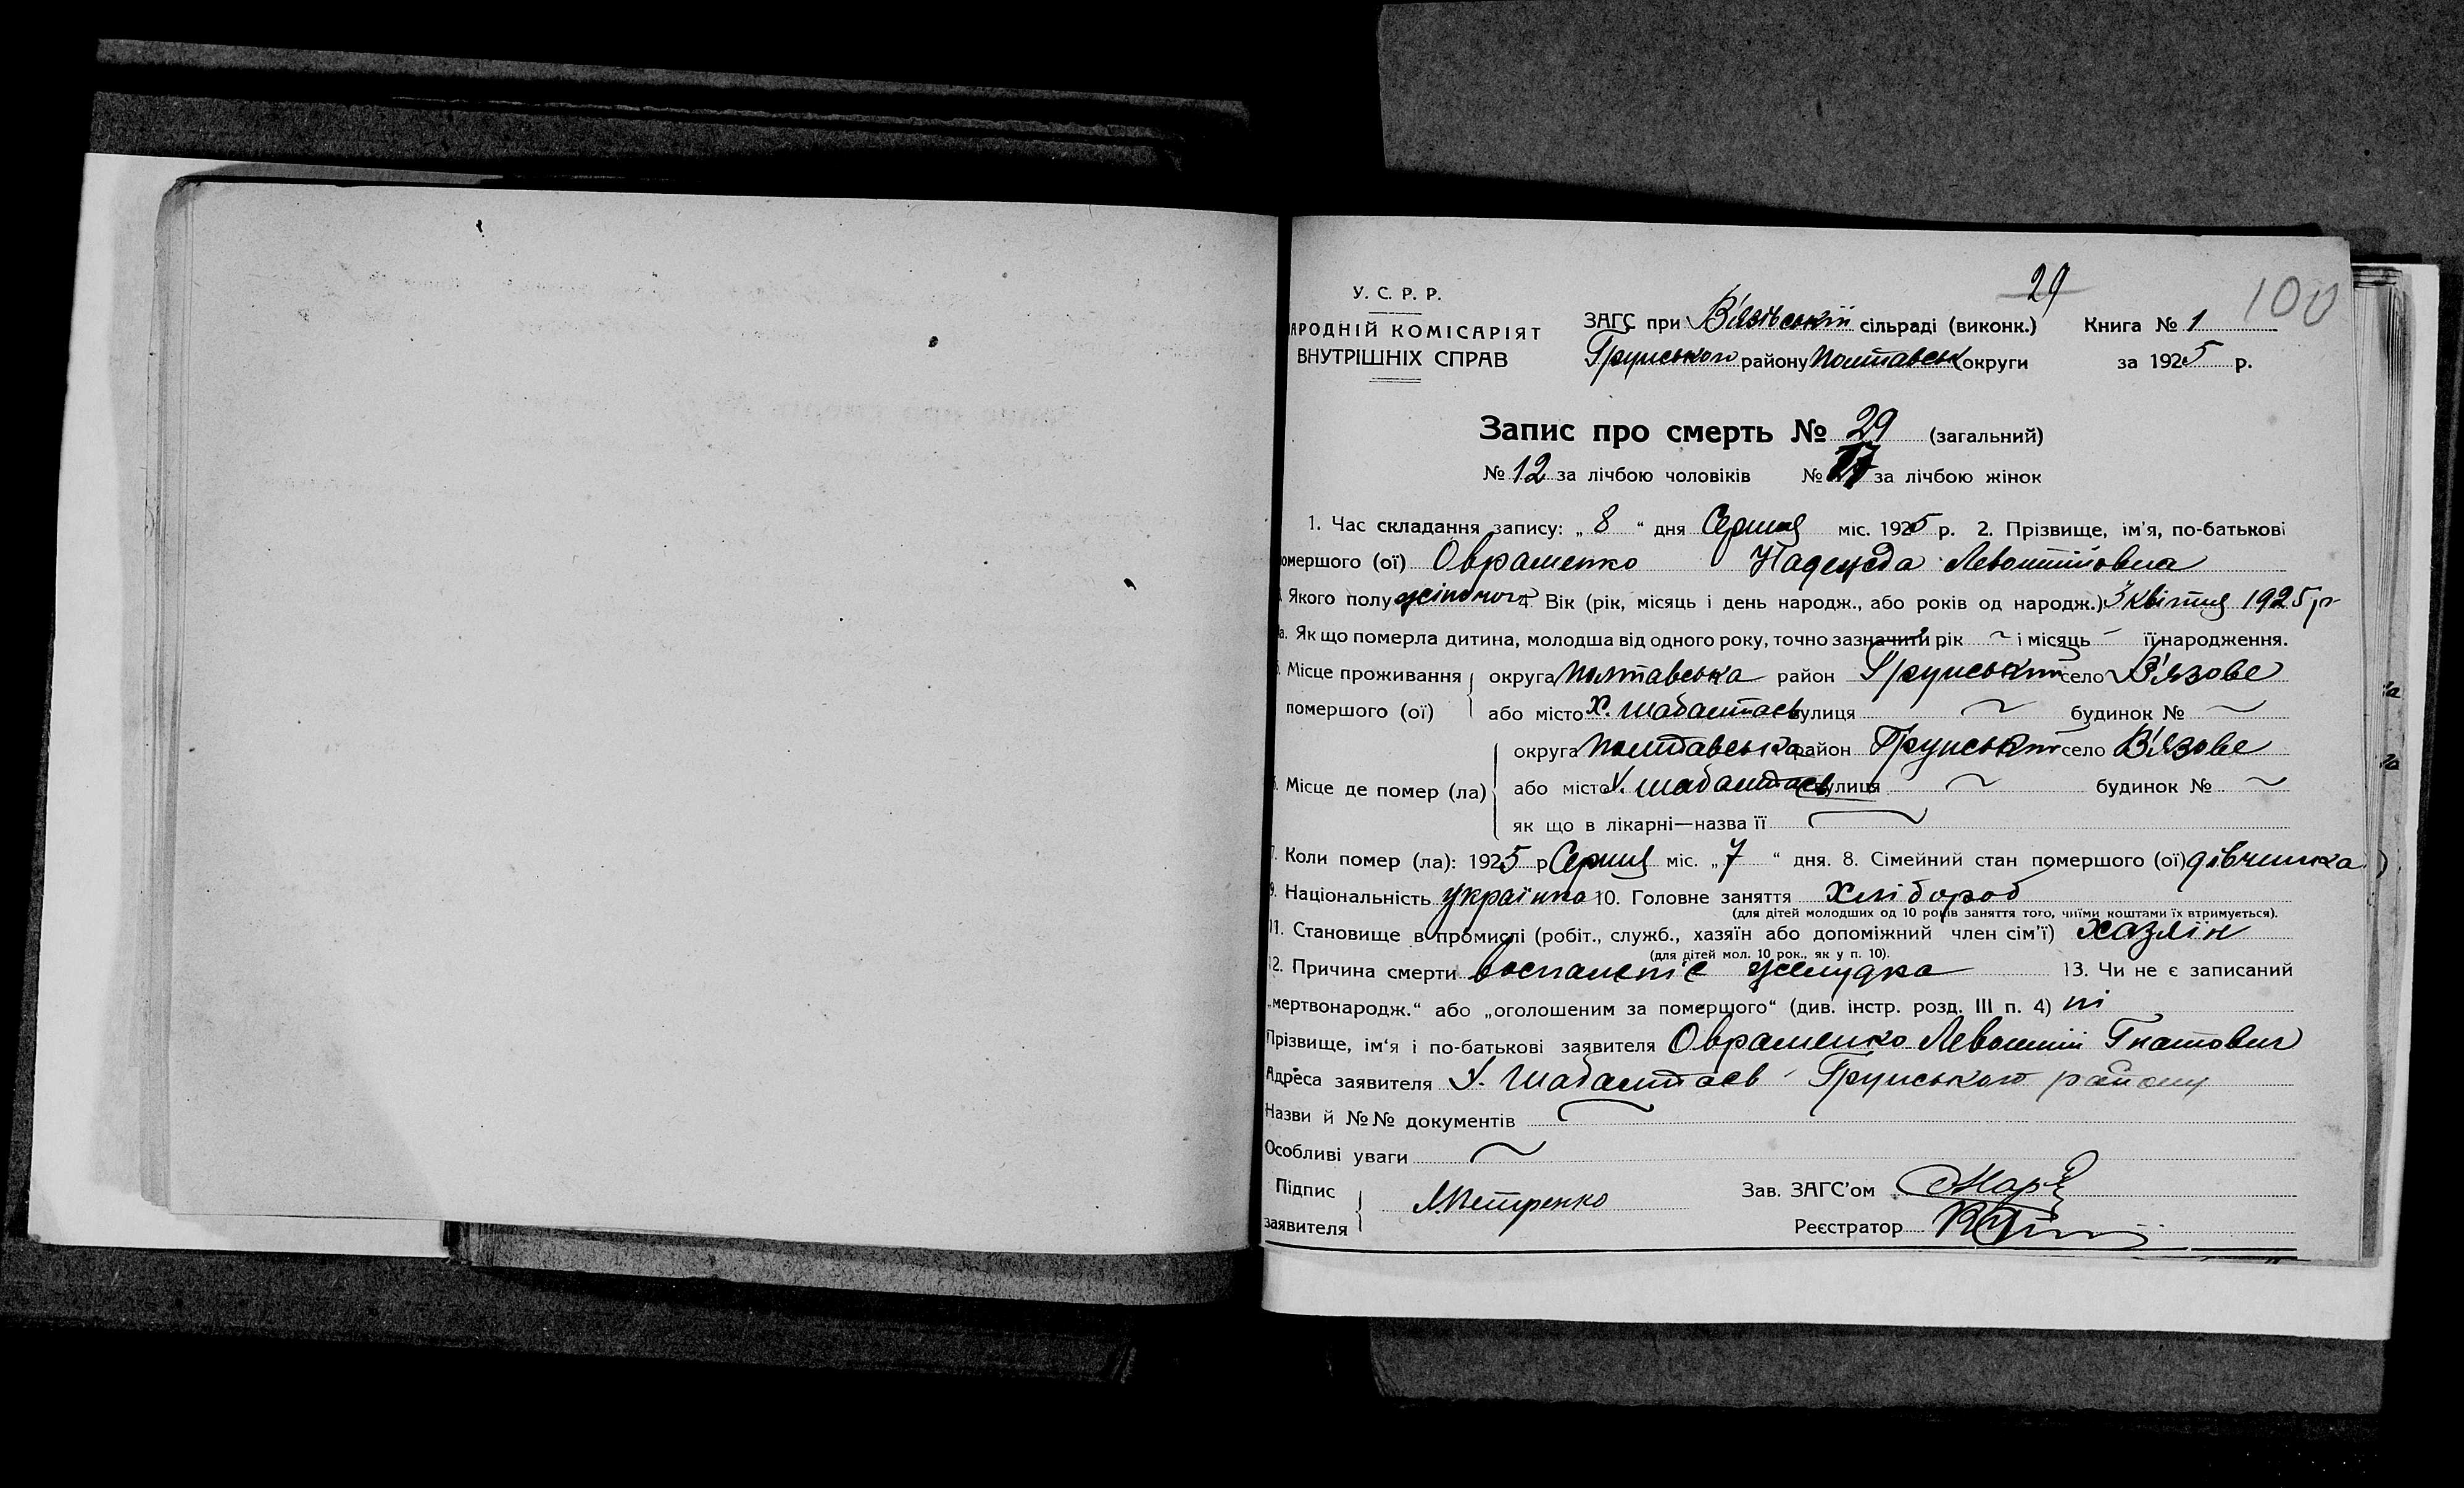 29
100
У. С. Р. Р.
АРОДНІЙ КОМІСАРІЯТ
ВНУТРІШНІХ СПРАВ
ЗАГС при В'язівській сільраді (виконк.) Книга № 1
Грунського району Полтавськ округи за 1925 р.
Запис про смерть № 29 (загальний)
№ 12 за лічбою чоловіків № 17 за лічбою жінок
1. Час складання запису: „ 8 “ дня Серпня міс. 1925 р. 2. Прізвище, ім'я, по-батькові
омершого (ої) Овраменко Надежда Левонтійовна
Якого полу жіночого 4. Вік (рік, місяць і день народж., або років од народж.) 3 квітня 1925 р
а. Як що померла дитина, молодша від одного року, точно зазначити рік ~ і місяць - її народження.
Місце проживання округа Полтавська район Грунський село В'язове
помершого (ої) або місто х. Шабалтаєв вулиця ~ будинок № ~
округа Полтавська район Грунський село В'язове
Місце де помер (ла) або місто х. Шабалтаєв вулиця ~ будинок № ~
як що в лікарні—назва її
7. Коли помер (ла): 1925 р Серпня міс. „ 7 “ дня. 8. Сімейний стан помершого (ої) дівчинка
9. Національність українка 10. Головне заняття хлібороб
(для дітей молодших од 10 років заняття того, чиїми коштами їх втримується).
11. Становище в промислі (робіт., служб., хазяїн або допоміжний член сім'ї) хазяїн
(для дітей мол. 10 рок., як у п. 10).
12. Причина смерти воспаленіє желудка 13. Чи не є записаний
„мертвонародж.“ або „оголошеним за помершого“ (див. інстр. розд. III п. 4) ні
Прізвище, ім'я і по-батькові заявителя Овраменко Левонтій Гнатович
Адреса заявителя х. Шабалтаєв Грунського району
Назви й №№ документів
Особливі уваги
Підпис
заявителя
Л. Петренко
Зав. ЗАГС'ом
Реєстратор